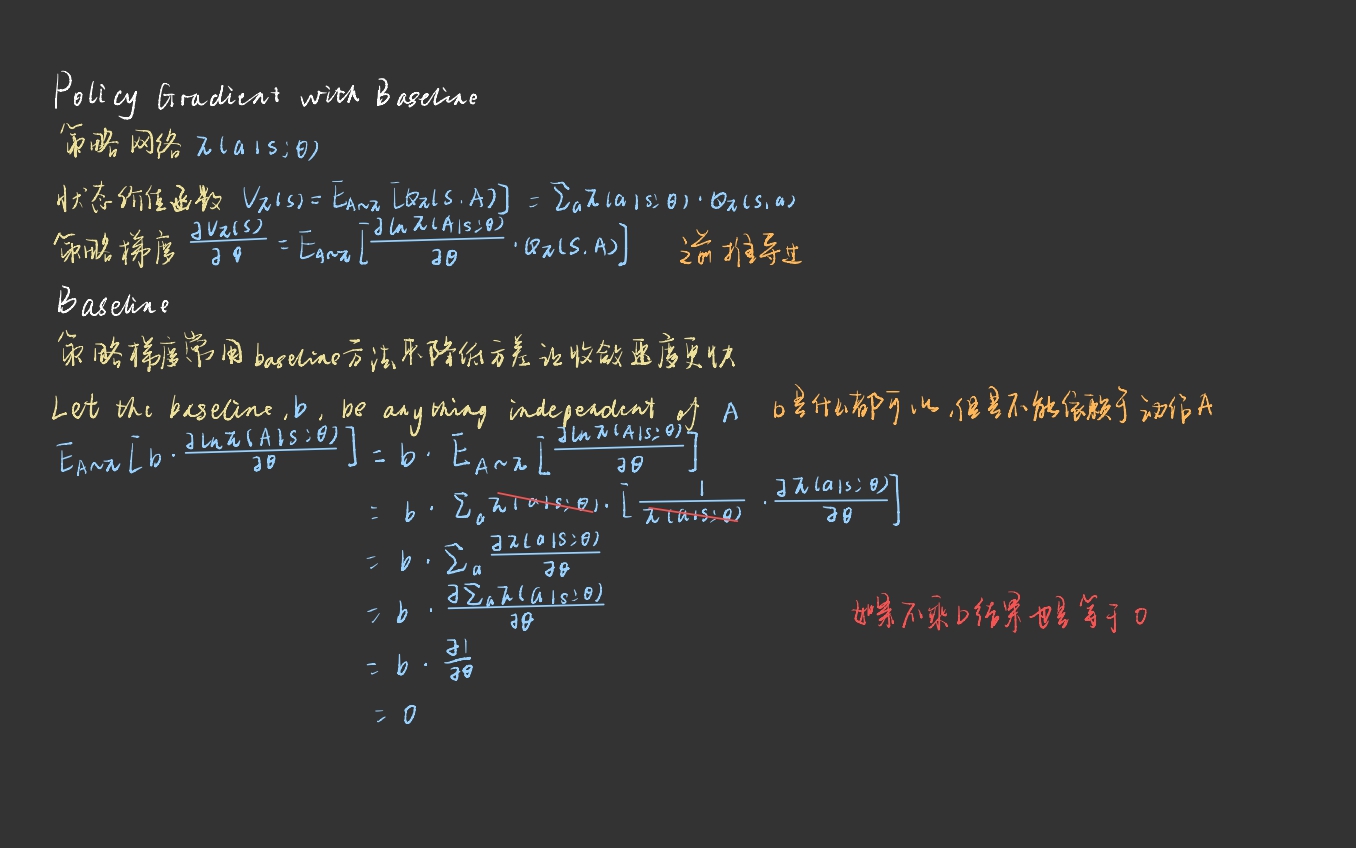 Policy Gradient with Baseline
策略网络 π(a|s;θ)
状态价值函数 Vπ(s) = E_A~π [Qπ(S,A)] = Σ_a π(a|s;θ)·Qπ(s,a)
策略梯度 ∂Vπ(s)/∂θ = E_A~π [∂lnπ(A|s;θ)/∂θ · Qπ(S,A)] 之前推导过
Baseline
策略梯度常用baseline方法来降低方差让收敛速度更快
Let the baseline, b, be anything independent of A b是什么都可以,但是不能依赖于动作A
E_A~π [b · ∂lnπ(A|s;θ)/∂θ] = b · E_A~π [∂lnπ(A|s;θ)/∂θ]
= b · Σ_a π(a|s;θ) · [1/π(a|s;θ) · ∂π(a|s;θ)/∂θ]
= b · Σ_a ∂π(a|s;θ)/∂θ
= b · ∂Σ_a π(a|s;θ)/∂θ
如果不乘b结果也是等于0
= b · ∂1/∂θ
= 0